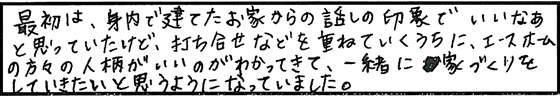 最初は、身内で建てたお家からの話しの印象でいいなあ
と思っていたけど、打ち合せなどを重ねていくうちに、エースホーム
の方々の人柄がいいのがわかってきて、一緒に家づくりを
していきたいと思うようになっていました。